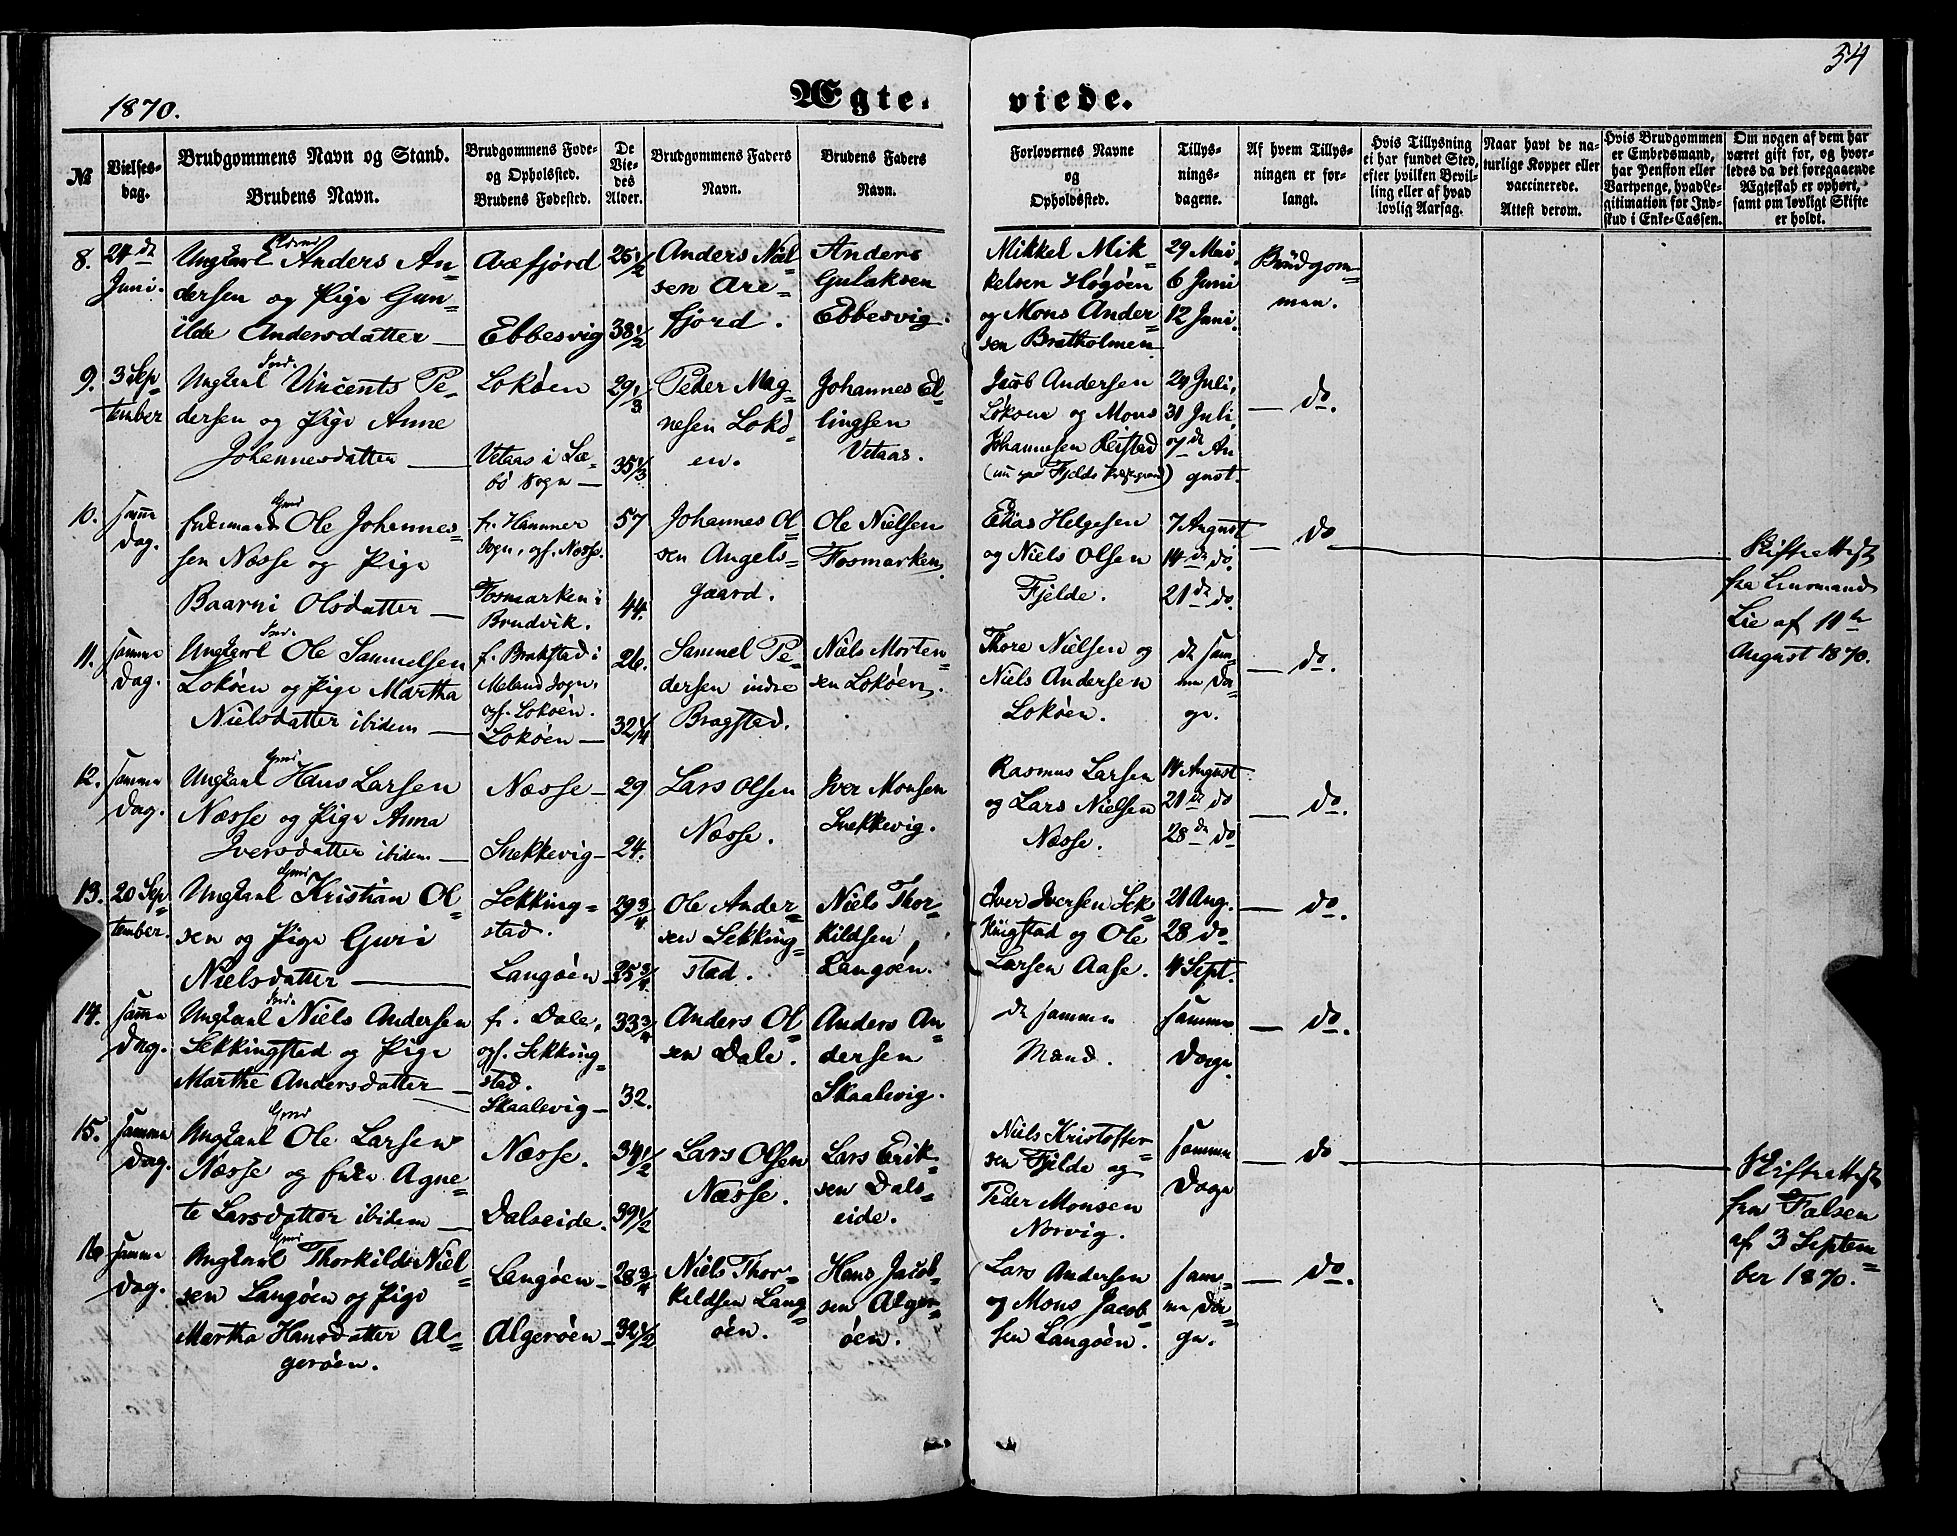 54
1870.
Ægte-
viede.
№
Vielses-
dag.
Brudgommens Navn og Stand.
Brudens Navn.
Brudgommens Føde-
og Opholdsted.
Brudens Fødested.
De
Vie-
des
Alder.
Brudgommens Faders
Navn.
Brudens Faders
Navn.
Forlovernes Navne
og
Opholdsted.
Tillys-
nings-
dagene.
Af hvem Tillys-
ningen er for-
langt.
Hvis Tillysning
ei har fundet Sted,
efter hvilken Bevil-
ling eller af hvad
lovlig Aarsag.
Naar havt de na-
turlige Kopper eller
vaccinerede.
Attest derom.
Hvis Brudgommen
er Embedsmand,
har Pension eller
Vartpenge, hvad Le-
gitimation for Ind-
skud i Enke-Cassen.
Om nogen af dem har
været gift før, og hvor-
ledes da det foregaaende
Ægteskab er ophørt,
samt om lovligt Skifte
er holdt.
8.
24de
Juni.
Ungkarl Anders An-
dersen og Pige Gun-
ilde Andersdatter
Arefjord
Ebbesvig
25 1/2
38 1/2
Anders Niel-
sen Are-
fjord.
Anders
Gulaksen
Ebbesvig.
Mikkel Mik-
kelsen Høgøen
og Mons Ander-
sen Bratholmen
29 Mai
6 Juni
12 Juni
Brudgom-
men.
9.
3 Sep-
tember
Ungkarl Vincents Pe-
dersen og Pige Anne
Johannesdatter
Lokøen
Vetaas i Sæ-
bø Sogn
29 1/3
35 1/3
Peder Mag-
nesen Lokø-
en.
Johannes El-
lingsen
Vetaas.
Jacob Andersen
Lokøen og Mons
Johannesen Reistad
24 Juli,
31 Juli,
7de Au-
gust.
do.
10.
samme
Dag.
Enkemand Ole Johannes-
sen Næsse og Pige
Baarni Olsdatter
f. Hammer
Sogn, opf. Næsse.
Fosmarken i
Brudvik.
57
44.
Johannes Ol-
sen Angels-
gaard.
Ole Nielsen
Fosmarken.
Elias Helgesen
og Niels Olsen
Fjelde.
7 August
14de do.
21de do.
do
Skifteattest
fra Lensmand
Lie af 11te
August 1870.
11.
samme
Dag.
Ungkarl Ole Samuelsen
Lokøen og Pige Martha
Nielsdatter ibidem
f. Brakstad i
Meland Sogn,
opf. Lokøen.
Lokøen
26.
32 1/4
Samuel Pe-
dersen indre
Bragstad.
Niels Morten-
sen Lokøen.
Thore Nielsen og
Niels Andersen
Lokøen.
de sam-
me Da-
ge.
do.
12.
samme
Dag.
Ungkarl Hans Larsen
Næsse og Pige Anna
Iversdatter ibidem
Næsse
Snekkevig
29
24.
Lars Olsen
Næsse.
Iver Monsen
Snekkevig.
Rasmus Larsen
og Lars Nielsen
Næsse.
14 August
21de do
28de do
do.
13.
20 Sep-
tember.
Ungkarl Kristian Ol-
sen og Pige Guri
Nielsdatter
Sekking-
stad.
Langøen
29 3/4
25 3/4
Ole Ander-
sen Sekking-
stad.
Niels Thor-
kildsen
Langøen.
Iver Iversen Sek-
kingstad og Ole
Larsen Aase.
21 Aug.
28 do
4 Sept.
do.
14.
samme
Dag.
Ungkarl Niels Andersen
Sekkingstad og Pige
Marthe Andersdatter
f. Dale,
opf. Sekking-
stad.
Skaalevig
33 3/4
32.
Anders Ol-
sen Dale.
Anders An-
dersen
Skaalevig.
de samme
Mænd.
samme
Dage.
do.
15.
samme
Dag.
Ungkarl Ole Larsen
Næsse og Enke Agne-
te Larsdatter ibidem
Næsse.
Dalseide.
34 1/2
39 1/2
Lars Olsen
Næsse.
Lars Erik-
sen Dals-
eide.
Niels Kristoffer-
sen Fjelde og
Peder Monsen
Norvig.
samme
Dage
do
Skifteattest
fra Falsen
af 3 Septem-
ber 1870.
16
samme
Dag.
Ungkarl Thorkild Niel-
sen Langøen og Pige
Martha Hansdatter Al-
gerøen.
Langøen
Algerøen
28 3/4
32 1/2
Niels Thor-
kildsen Lang-
øen.
Hans Jacob-
sen Alger-
øen.
Lars Andersen
og Mons Jacob-
sen Langøen.
sam-
me Da-
ge.
do.